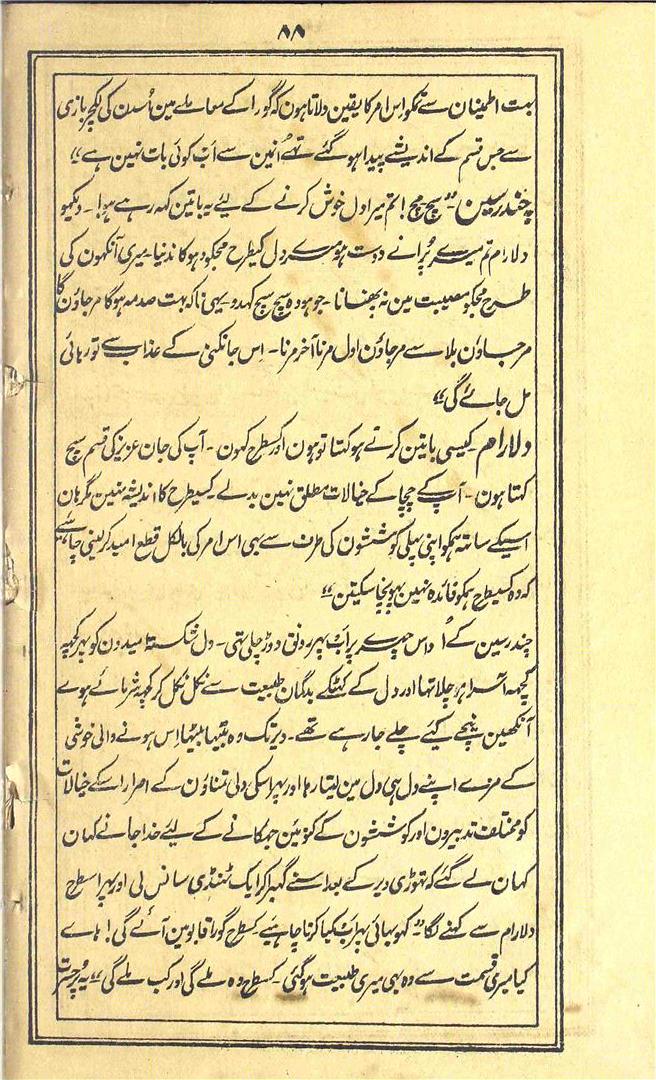 ۸۸
بہت اطمینان سے تمکو اِس امر کا یقین دلاتا ہون کہ گورا کے معاملے مین اُسدن کی لکچر بازی
سے جس قسم کے اندیشے پیدا ہو گئے تھے اُنین سے اَب کوئی بات نہین ہے‘‘
چندرسین۔’’سچ مچ! تم میرا دل خوش کرنے کے لیئے یہ باتین کہہ رہے ہو!۔ دیکھو
دلارام تم میرے پُرانے دوست ہو میرے دل کیطرح مجکو دہوکا ندینا۔ میری آنکھون کی
طرح مجکو مصیبت مین نہ پھنسانا۔ جو ہو وہ سچ سچ کہدو یہی نا کہ بہت صدمہ ہوگا مرجاؤن گا
مرجاؤن بلا سے مرجاؤن اول مرنا آخر مرنا۔ اِس جانکنی کے عذاب سے تو رہائی
مل جائے گی‘‘
دلارام۔ کیسی باتین کرتے ہو کہتا تو ہون اور کسطرح کہون۔ آپ کی جان عزیز کی قسم سچ
کہتا ہون۔ آپ کے چچا کے خیالات مطلق نہین بدلے۔ کسیطرح کا اندیشہ نہین مگر ہان
اسیکے ساتھ ہمکو اپنی پہلی کوششون کی طرف سے بھی اس امر کی بالکل قطع امید کر لینی چاہئے
کہ وہ کسیطرح ہمکو فائدہ نہین پہونچا سکتین‘‘
چندرسین کے اُداس چہرے پر اَب پہر رونق دوڑ چلی تھی۔ دل شکستہ امیدون کو پہر کچہہ
کچہہ آسرا ہو چلا تہا اور دل کے کہٹکے بدگمان طبیعت سے نکل نکل کر کچہہ شرمائے ہوے
آنکھین نیچے کیئے چلے جارہے تھے۔ دیر تک وہ بیٹہا بیٹہا اِس ہونے والی خوشی
کے مزے اپنے دل ہی دل مین لیتا رہا اور پہر اسکی دلی تمناؤن کے اصرار اسکے خیالات
کو مختلف تدبیرون اور کوششون کے کنوئین جہکانے کے لیئے خدا جانے کہان
کہان لے گئے کہ تہوڑی دیر کے بعد اسنے گہبرا کر ایک ٹہنڈی سانس لی اور پہر اسطرح
دلارام سے کہنے لگا’’ کہو بہائی پہر اَب کیا کرنا چاہیئے کسطرح گورا قابو مین آئے گی! ہاے
کیا میری قسمت سے وہ بہی میری طبیعت ہوگئی۔ کسطرح وہ ملے گی اور کب ملے گی‘‘ یہ پُرحسرت